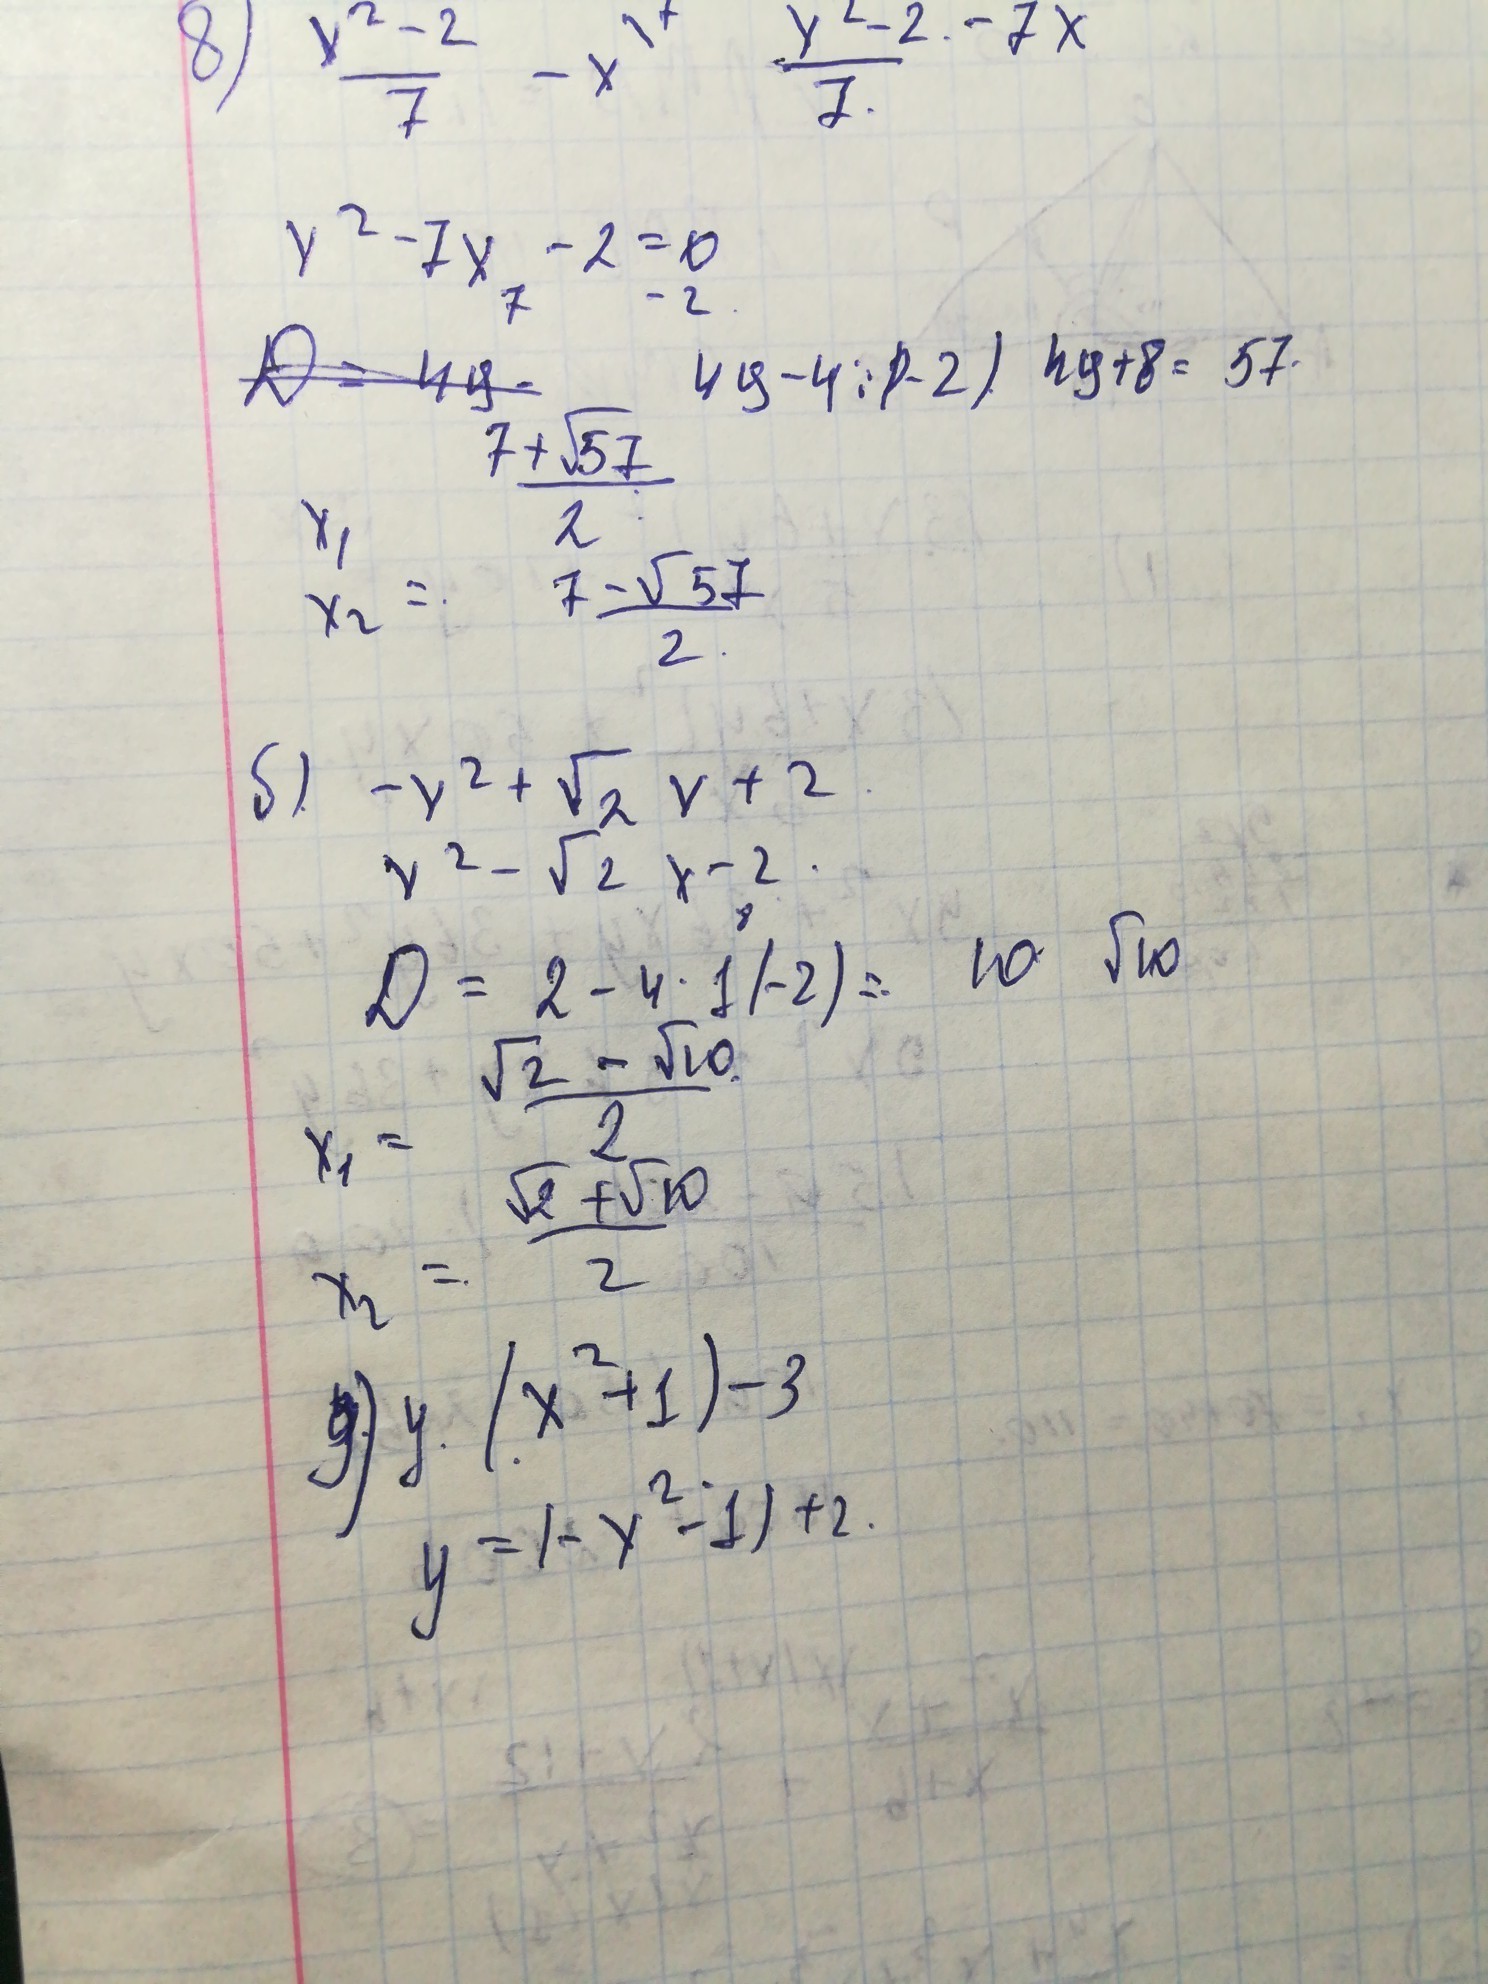 8) x² - 2 / 7 - x \⁷ x² - 2 . - 7x / 7.
x² - 7x - 2 = 0
7 - 2.
D = 49 - 49 - 4 · 1(-2) 49 + 8 = 57.
x₁ 7 + √57 / 2
x₂ = 7 - √57 / 2.
б) - x² + √2 x + 2.
x² - √2 x - 2.
8
D = 2 - 4 · 1(-2) = 10 √10
x₁ = √2 - √10 / 2
x₂ = √2 + √10 / 2
9) y. (x² + 1) - 3
y = (- x² - 1) + 2.